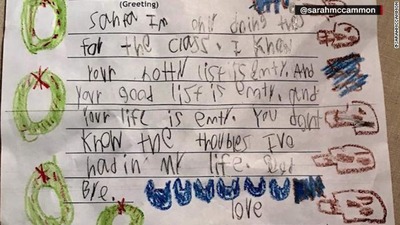 (Greeting)
@sarahmccammon
Santa Im only doing this
For the class. I know
your notty list is emty. And
your good list is emty. And
your life is emty. You dont
know the troubles Ive
had in my life. Good
Bye.
love
@SARAHMCCAMMON